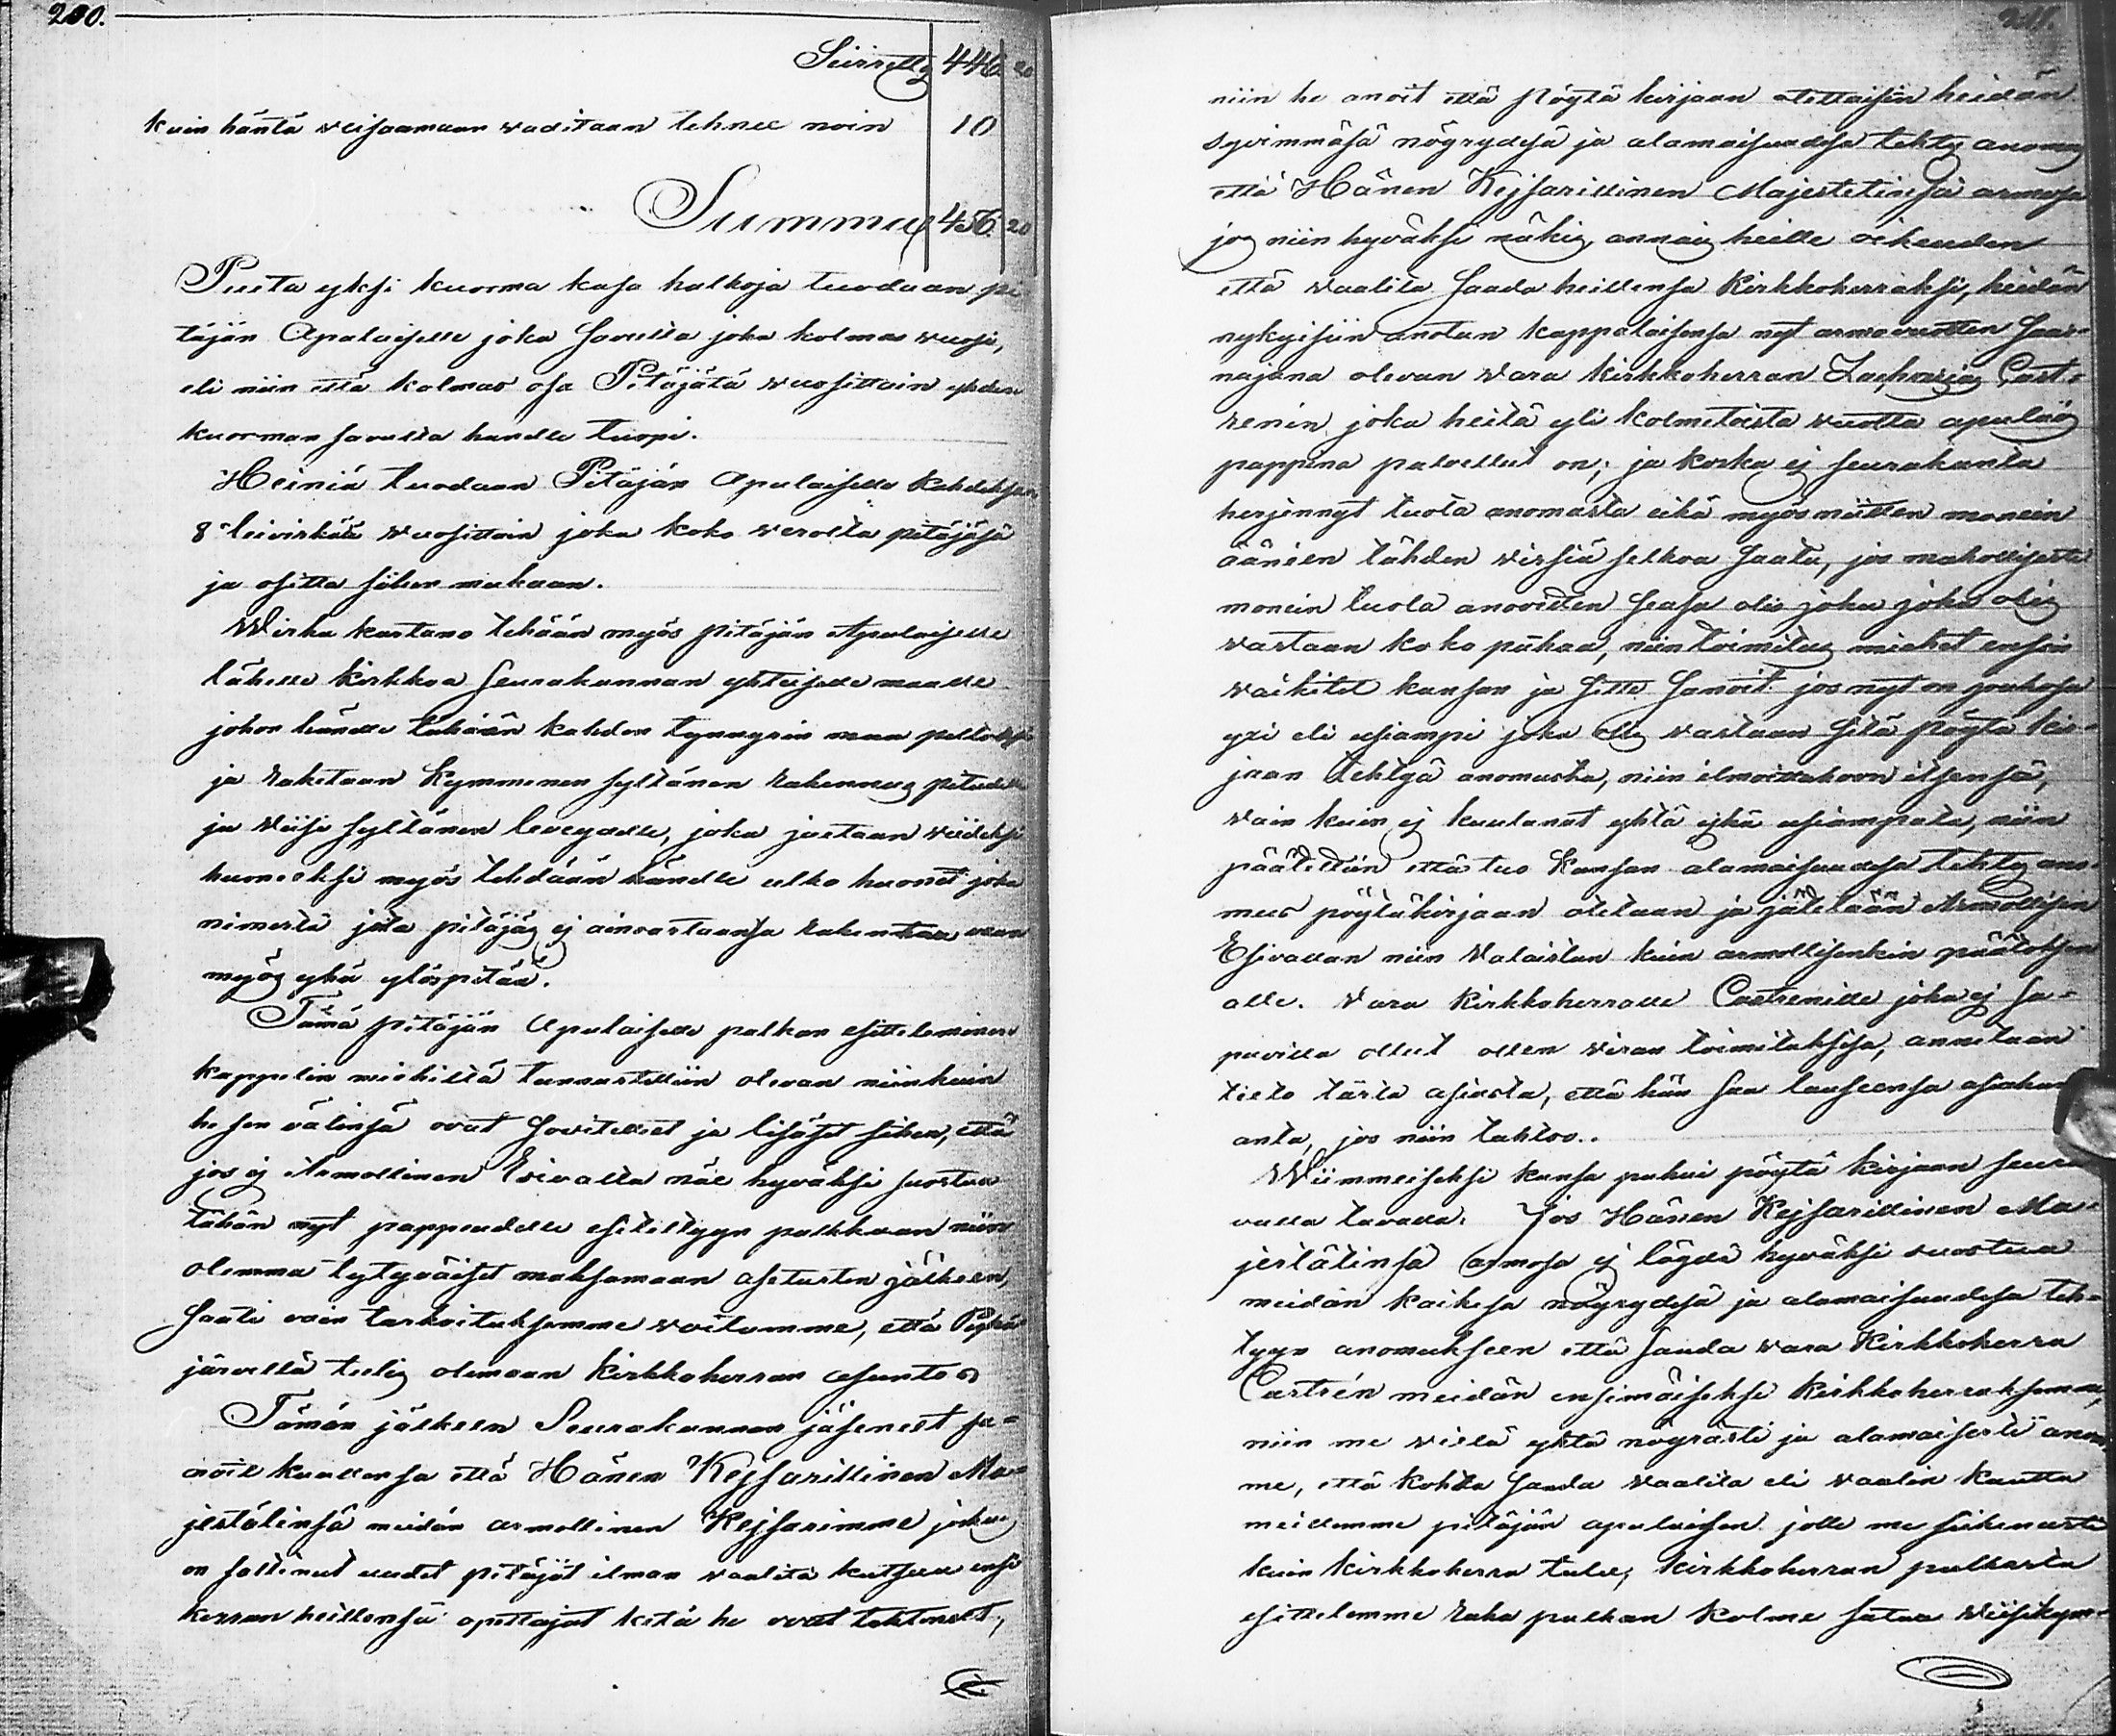 200.
Siirretty 446 20
kuin häntä veisaamaan vaditaan tehnee noin 10
Summa 456. 20
Puita yksi kuorma kasa halkoja tuodaan pi
täjän Apulaiselle joka savulta joka kolmas vuosi,
eli niin että kolmas osa Pitäjätä vuosittain yhden
kuorman savulta hanelle tuopi.
Heiniä tuodaan Pitäjän Apulaiselle kahdeksan
8 leiviskää vuosittain joka koko verolta pitäjäsä
ja ositta siihen mukaan.
Wirka kartano tehään myös pitäjän Apulaiselle
lähelle kirkkoa Seurakunnan yhteiselle maalle
johon hänelle tehään kahden tynnyrin maa pelloksi
ja raketaan kymmenen syltänen rakennus pitudelle
ja viisi syltänen leveydelle, joka jaetaan viideksi
huoneeksi myös tehdään hänelle ulko huonet joka
nimestä jota pitäjä ej ainoastaansa rakentaa vaan
myös yhä ylöspitää.
Tämä pitäjän Apulaiselle palkan esitteleminen
kappelin miehiltä tunnustettiin olevan niinkuin
he sen välinsä ovat sovitellet ja lisäsit siihen, että
jos ej Armollinen Esivalta näe hyväksi suostua
tähän nyt pappeudelle esiteltyyn palkkaan niin
olemma tytyväiset maksamaan asetusten jälkeen,
Saati vain tarkoituksemme voitamme, että Pyhä
järvellä tulis olemaan kirkkoherran asunto.
Tämän jälkeen Seurakunnan jäsenest sa=
noit kuullensa että Hänen Kejsarillinen Ma=
jestätinsä meidän armollinen Kejsarimme joskus
on sallinut uudet pitäjät ilman vaalita kutsua ensi
kerran heillensä opettajat ketä he ovat tahtonet,
211.
niin he anoit että pöytä kirjaan otettaisiin heidän
syvimmäsä nöyrydesä ja alamaisuudesa tehty anomus
että Hänen Kejsarillinen Majestetinsä armosa
jos niin hyväksi näkis, annais heille oikeuden
että vaalita saada heillensa Kirkkoherraksi, heidän
nykyisiin anotun kappalaisensa nyt armovuotten saar=
najana olevan vara kirkkoherran Zacharias Cast=
renin joka heitä yli kolmetoista vuotta apulais
pappina palvellut on; ja koska ej seurakunta
herjennyt tuota anomasta eikä myös niitten monein
äänien tähden virsiä selkoa saatu, jos mahollisesti
monein tuota anoviden seasa olis joku joka olis
vastaan koko puhaa, niin toimitus miehet ensin
vaikitit kansan ja sitte sanoit: jos nyt on joukosa
yxi eli usiampi joka olis vastaan sitä pöytä kir=
jaan tehtyä anomusta, niin ilmoittakoon itsensä,
vain kuin ej kuulunut yhtä eikä usiampata, niin
päätettiin että tuo kansan alamaisuudesa tehty ano=
mus pöytäkirjaan otetaan ja jätetään Armollisen
Esivallan niin valaistun kuin armollisenkin päätöksen
alle. Vara kirkkoherralle Castrenille joka ej sa=
puvilla ollut ollen viran toimituksesa, annetaan
tieto tästä asiasta, että hän saa lauseensa asiahan
anta, jos niin tahtoo.
Wiimmeiseksi kansa puhui pöytä kirjaan seura
avalla tavalla: Jos Hänen Kejsarillinen Ma=
jestätinsä armosa ej löydä hyväksi suostua
meidän kaikesa nöyrydesä ja alamaisuudesa teh=
tyyn anomukseen että saada vara Kirkkoherra
Castrén meidän ensimäiseksi kirkkoherraksemme,
niin me vielä yhtä nöyrästi ja alamaisesti anom
me, että kohta saada vaalita eli vaalin kautta
meillemme pitäjän apulaisen jolle me siihenasti
kuin kirkkoherra tulee, kirkkoherran palkasta
esittelemme raha palkan kolme sataa viisikym=